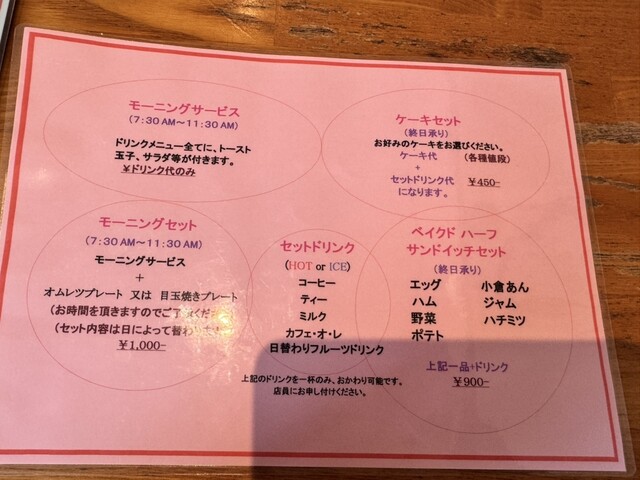 モーニングサービス
(7:30 AM~11:30 AM)
ドリンクメニュー全てに、トースト
玉子、サラダ等が付きます。
¥ドリンク代のみ
ケーキセット
(終日承り)
お好みのケーキをお選びください。
ケーキ代 (各種値段)
+
セットドリンク代 ¥450-
になります。
モーニングセット
(7:30 AM~11:30 AM)
モーニングサービス
+
オムレツプレート 又は 目玉焼きプレート
(お時間を頂きますのでご了承くだ
(セット内容は日によって替わ
¥1,000-
セットドリンク
(HOT or ICE)
コーヒー
ティー
ミルク
カフェ・オ・レ
日替わりフルーツドリンク
上記のドリンクを一杯のみ、おかわり可能です。
店員にお申し付けください。
ベイクド ハーフ
サンドイッチセット
(終日承り)
エッグ 小倉あん
ハム ジャム
野菜 ハチミツ
ポテト
上記一品+ドリンク
¥900-